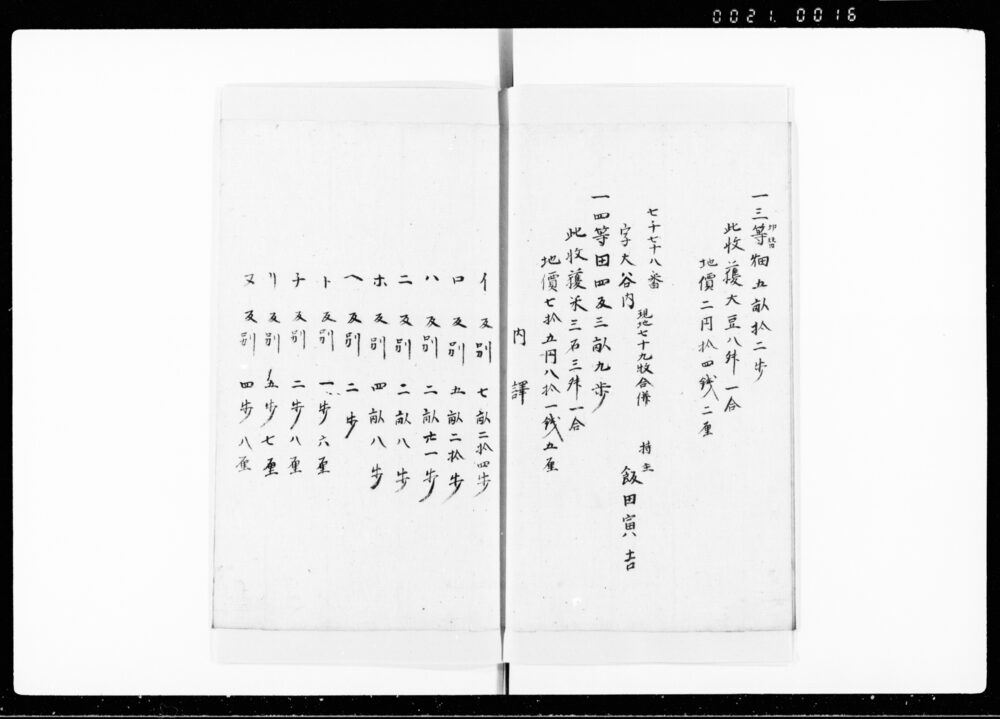 0021.0016
一三等畑五畝拾二歩
此收護大豆八舛一合
地價二円拾四銭二厘
七千七十八番
字大谷内
現地七十九牧合併
持主
飯田寅吉
一四等田四反三畝九歩
此收護米三石三舛一合
地價七拾五円八拾一銭五厘
内譯
イ反別 七畝二拾四歩
ロ反別 五畝二拾歩
ハ反別 二畝廿一歩
ニ反別 二畝八歩
ホ反別 四畝八歩
ヘ反別 二歩
ト反別 一歩六厘
チ反別 二歩八厘
リ反別 五歩七厘
ヌ反別 四歩八厘